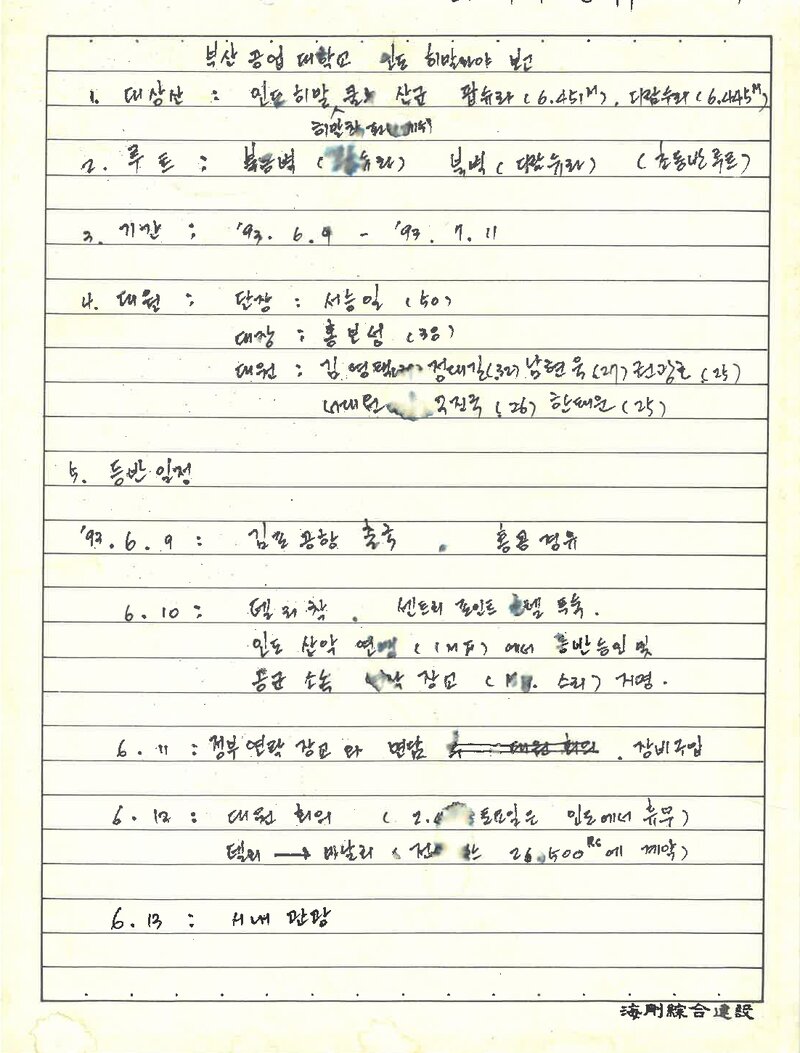 부산 공업 대학교 인도 히말라야 보고
1. 대상산 : 인도 히말 쿨루 산군 팝슈라 (6.451M), 다람슈라 (6.445M)
히말찰
2. 루트 : 북동벽 (팝슈라) 북벽 (다람슈라) (초등반 루트)
3. 기간 : '93. 6. 9 - '93. 7. 11
4. 대원 : 단장 : 서능일 (50)
대장 : 홍보성 (38)
대원 : 김영택 정대길(32) 남현욱(27) (25)
국진국 (26) 한태원 (25)
5. 등반일정
'93. 6. 9 : 김포공항 출국. 홍콩 경유
6. 10 : 델리착. 센트리 포인트 호텔 투숙.
인도 산악 연맹 (IMF) 에서 등반승인 및
공군 소속 연락 장교 (Mr. 스리) 지명.
6. 11 : 정부 연락 장교와 면담 대원 회의. 장비구입
6. 12 : 대원 회의 (2. 토요일은 인도에서 휴무)
델리 → 마날리 ( 26,500Rs에 계약)
6. 13 : 시내 관광
海剛綜合建設